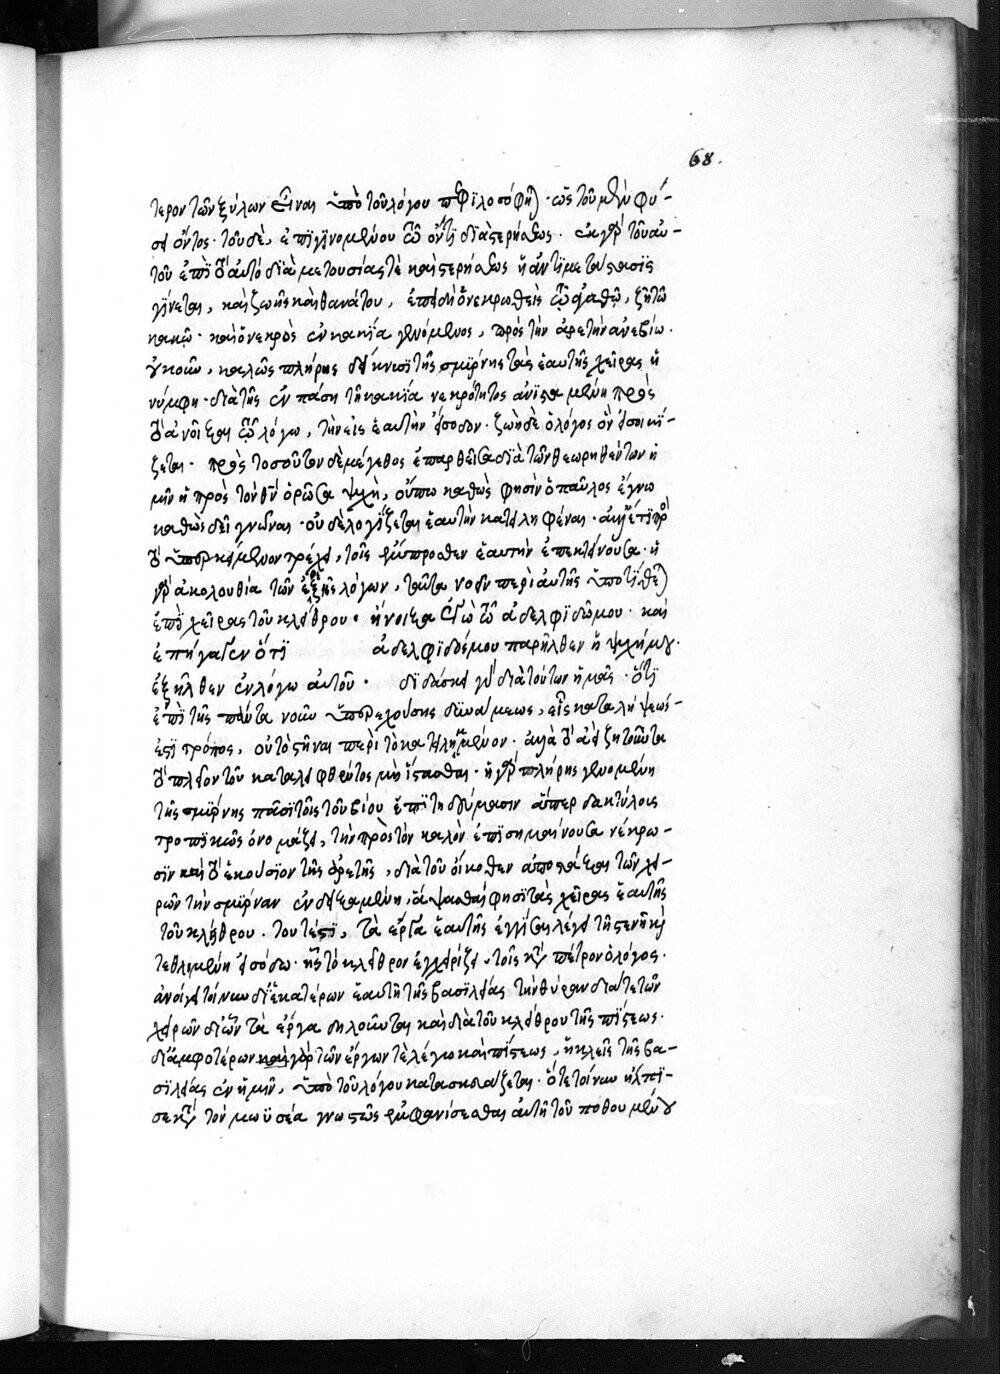 68.
τερον τῶν ξύλων εἶναι ὑπὸ τοῦ λόγου πεφιλοσόφηται · ὡς τοῦ μὲν φύ-
σει ὄντος · τοῦ δὲ, ἐπιγινομένου τῶ ὄντι διὰ στερήσεως · ἐκ γὰρ τοῦ αὐ-
τοῦ ἐπὶ τὸ αὐτὸ διὰ μετουσίας τὲ καὶ στερήσεως ἡ ἀντιμετάστασις
γίνεται, καὶ ζωῆς καὶ θανάτου, ἐπειδὴ ὁ νεκρωθεὶς τῷ ἀγαθῷ, ζῆ τῶ
κακῷ · καὶ ὁ νεκρὸς ἐν κακία γενόμενος, πρὸς τὴν ἀρετὴν ἀνεβίω ·
οὐκοῦν, καλῶς πλήρεις δείκνυσι τῆς σμύρνης τὰς ἑαυτῆς χεῖρας ἡ
νύμφη · διὰ τῆς ἐν πάση τῆ κακία νεκρότητος ἀνισταμένη πρὸς
τὸ ἀνοῖξαι τῷ λόγω, τὴν εἰς ἑαυτὴν εἴσοδον · ζωὴ δὲ ὁ λόγος ὃν εἰσοικί-
ζεται · πρὸς τοσοῦτον δὲ μέγεθος ἐπαρθεῖσα διὰ τῶν θεωρηθέντων ἡ
μῖν ἡ πρὸς τὸν θν ὁρῶσα ψυχὴ, οὔπω καθὼς φησὶν ὁ παῦλος ἔγνω
καθὼς δεῖ γνῶναι · οὐδὲ λογίζεται ἑαυτὴν κατειληφέναι · ἀλλ' ἔτι πρὸς
τὸ ὑπερκείμενον τρέχει, τοῖς ἔμπροσθεν ἑαυτὴν ἐπεκτείνουσα · ἡ
γὰρ ἀκολουθία τῶν ἐφεξῆς λόγων, ταῦτα νοεῖν περὶ αὐτῆς ὑποτίθεται
ἐπὶ χεῖρας τοῦ κλείθρου · ἤνοιξα ἐγὼ τῶ ἀδελφιδῶ μου · καὶ
ἐπήγαγεν ὅτι ἀδελφιδός μου παρῆλθεν ἡ ψυχή μου ·
ἐξῆλθεν ἐν λόγω αὐτοῦ · διδάσκει γὰρ διὰ τούτων ἡμᾶς · ὅτι
ἐπὶ τῆς πάντα νοῦν ὑπερεχούσης δυνάμεως, εἷς καταλήψεώς
ἐστι τρόπος, οὐ τὸ στῆναι περὶ τὸ κατειλημμένον · ἀλλὰ τὸ ἀεὶ ζητοῦντα
τὸ πλεῖον τοῦ καταληφθέντος μὴ ἵστασθαι · ἡ γὰρ πλήρης γενομένη
τῆς σμύρνης πᾶσι τοῖς τοῦ βίου ἐπιτηδεύμασιν ἅπερ δακτύλοις
τροπικῶς ὀνομάζει, τὴν πρὸς τὸν καλὸν ἐπισημαίνουσα νέκρω-
σιν καὶ τὸ ἑκούσιον τῆς ἀρετῆς, διὰ τοῦ οἴκοθεν ἀποστάξαι τῶν χει-
ρῶν τὴν σμύρναν ἐνδειξαμένη, ἅψασθαί φησι τὰς χεῖρας ἑαυτῆς
τοῦ κλείθρου · τουτέστι, τὰ ἔργα ἑαυτῆς ἐγγίσαι λέγει τῆ στενῆ καὶ
τεθλιμμένη εἰσόδω · ἧς τὸ κλεῖθρον ἐγχειρίζει τοῖς κατὰ πέτρον ὁ λόγος ·
ἀνοίγει τοίνυν δι' ἑκατέρων ἑαυτῆ τῆς βασιλείας τὴν θύραν διά τε τῶν
χειρῶν δι' ὧν τὰ ἔργα δηλοῦνται καὶ διὰ τοῦ κλείθρου τῆς πίστεως ·
δι' ἀμφοτέρων καὶ γὰρ τῶν ἔργων τὲ λέγω καὶ πίστεως, ἡ κλεὶς τῆς βα-
σιλείας ἐν ἡμῖν, ὑπὸ τοῦ λόγου κατασκευάζεται · ὅτε τοίνυν ἤλπι-
σε κατὰ τὸν μωϋσέα γνωστῶς ἐμφανίσεσθαι αὐτῆ τοῦ ποθουμένου